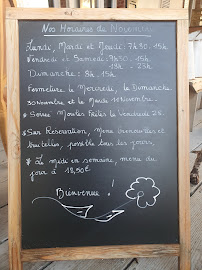 Nos Horaires de Novembre
Lundi, Mardi et Jeudi: 7h30-15h.
Vendredi et Samedi: 7h30-15h.
18h-23h.
Dimanche: 8h-15h.
Fermeture le Mercredi, le Dimanche
30 Novembre et le Mardi 11 Novembre.
* Soirée Moules Frites le Vendredi 28.
* Sur Réservation, menu
possible tous les jours.
* Le midi en semaine, menu du
jour à 18,50€
Bienvenue!